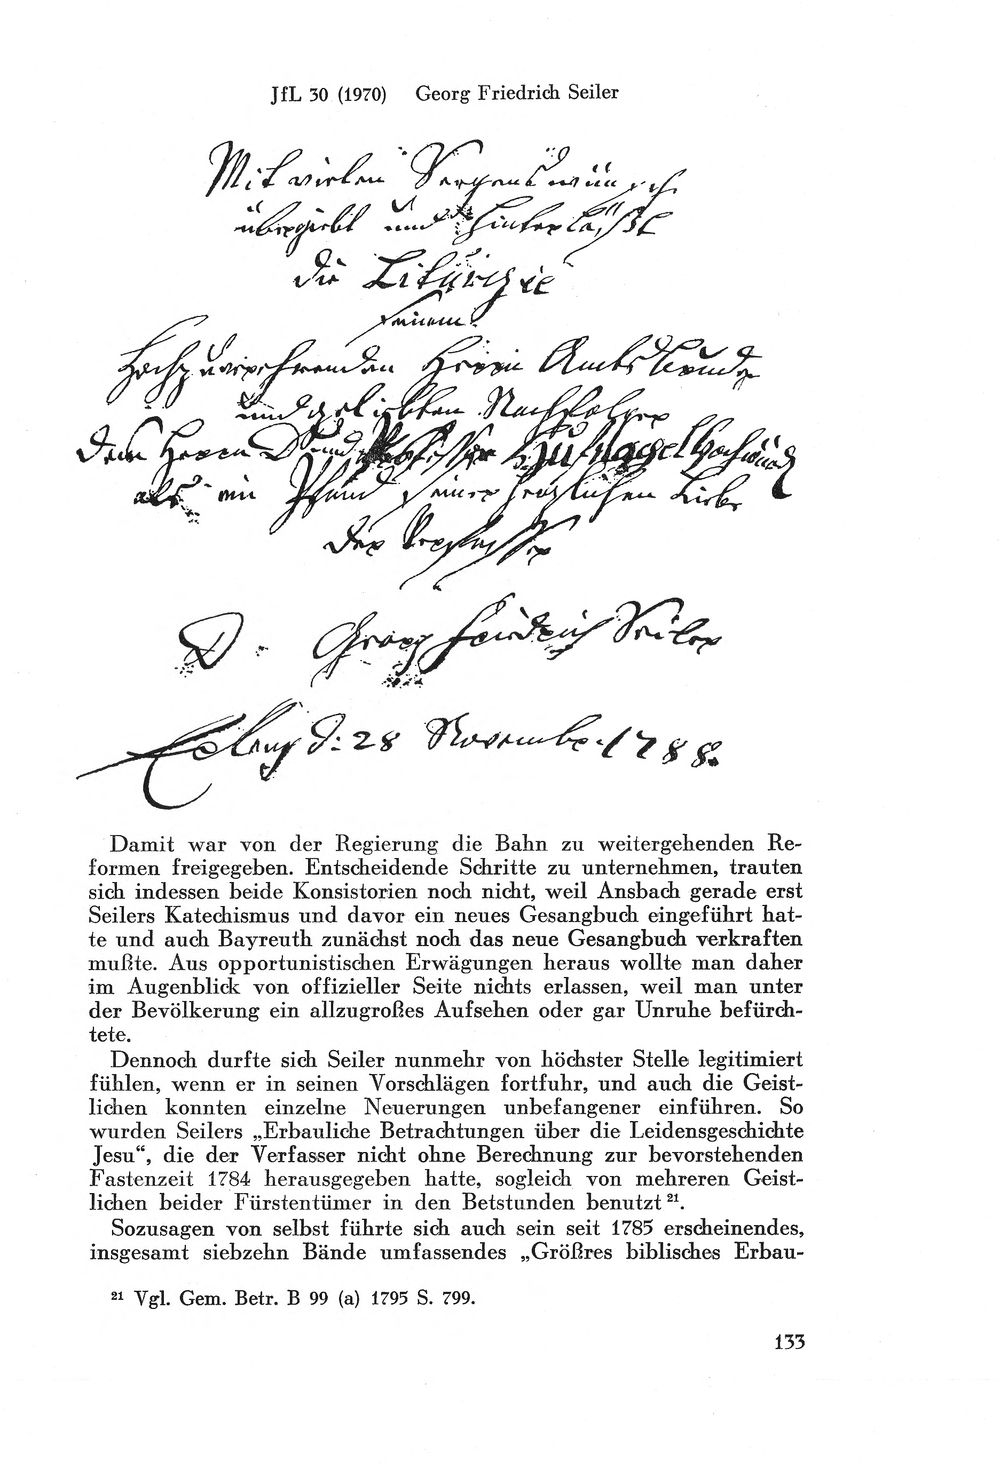 JfL 30 (1970) Georg Friedrich Seiler
Mit vielen Segenswünsch.
übergiebt und hinterläßt
die Liturgie
seinem
Hochzuverehrenden Herrn Amtsbruder
und geliebten Nachfolger
dem Herrn D und Professor Hufnagel Hochwürd
als ein Pfand seiner herzlichen Liebe
der Verfasser
D. Georg Friedrich Seiler
Erlang d: 28 November 1788.
Damit war von der Regierung die Bahn zu weitergehenden Re-
formen freigegeben. Entscheidende Schritte zu unternehmen, trauten
sich indessen beide Konsistorien noch nicht, weil Ansbach gerade erst
Seilers Katechismus und davor ein neues Gesangbuch eingeführt hat-
te und auch Bayreuth zunächst noch das neue Gesangbuch verkraften
mußte. Aus opportunistischen Erwägungen heraus wollte man daher
im Augenblick von offizieller Seite nichts erlassen, weil man unter
der Bevölkerung ein allzugroßes Aufsehen oder gar Unruhe befürch-
tete.
Dennoch durfte sich Seiler nunmehr von höchster Stelle legitimiert
fühlen, wenn er in seinen Vorschlägen fortfuhr, und auch die Geist-
lichen konnten einzelne Neuerungen unbefangener einführen. So
wurden Seilers „Erbauliche Betrachtungen über die Leidensgeschichte
Jesu“, die der Verfasser nicht ohne Berechnung zur bevorstehenden
Fastenzeit 1784 herausgegeben hatte, sogleich von mehreren Geist-
lichen beider Fürstentümer in den Betstunden benutzt ²¹.
Sozusagen von selbst führte sich auch sein seit 1785 erscheinendes,
insgesamt siebzehn Bände umfassendes „Größres biblisches Erbau-
²¹ Vgl. Gem. Betr. B 99 (a) 1795 S. 799.
133